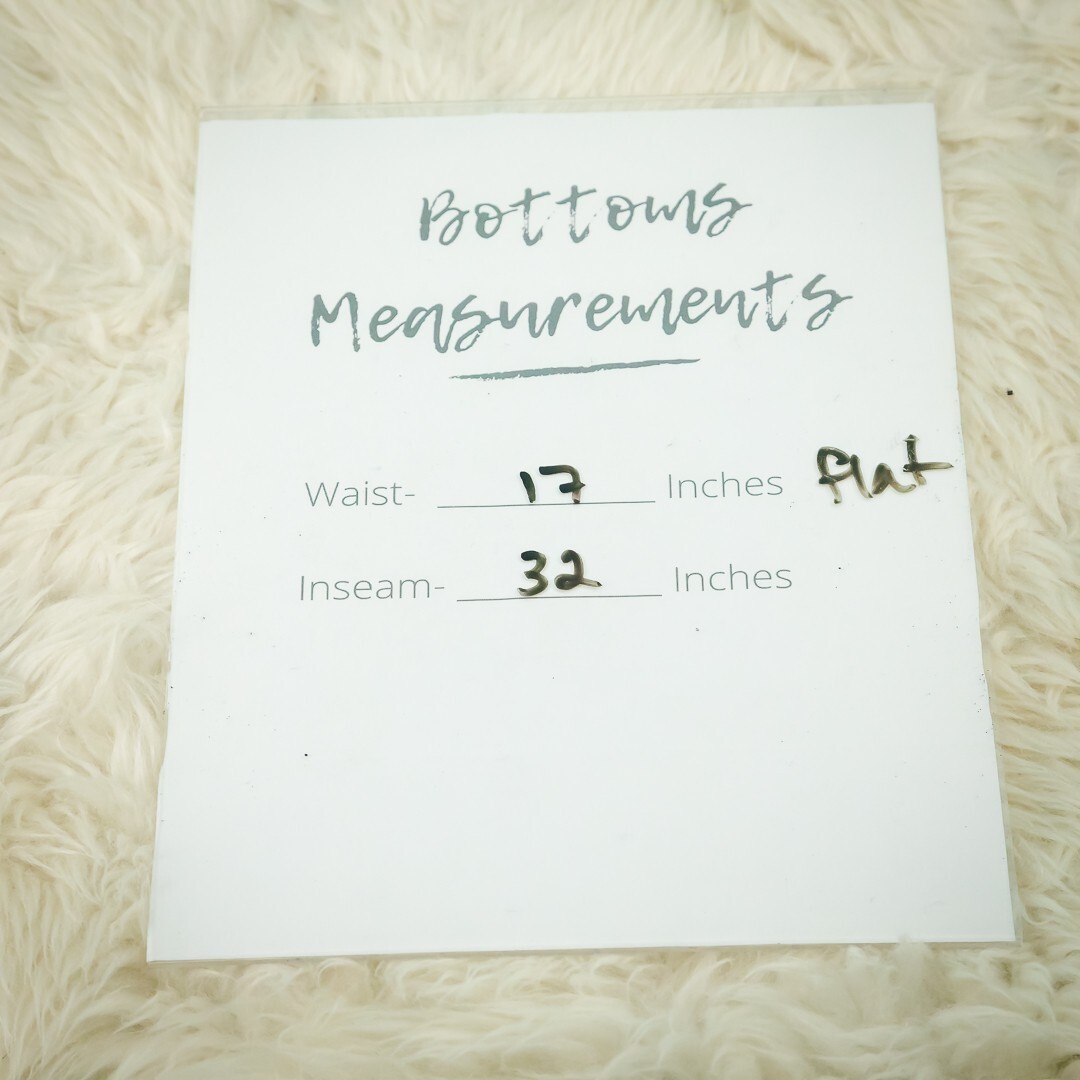 Bottoms
Measurements
Waist- 17 Inches flat
Inseam- 32 Inches